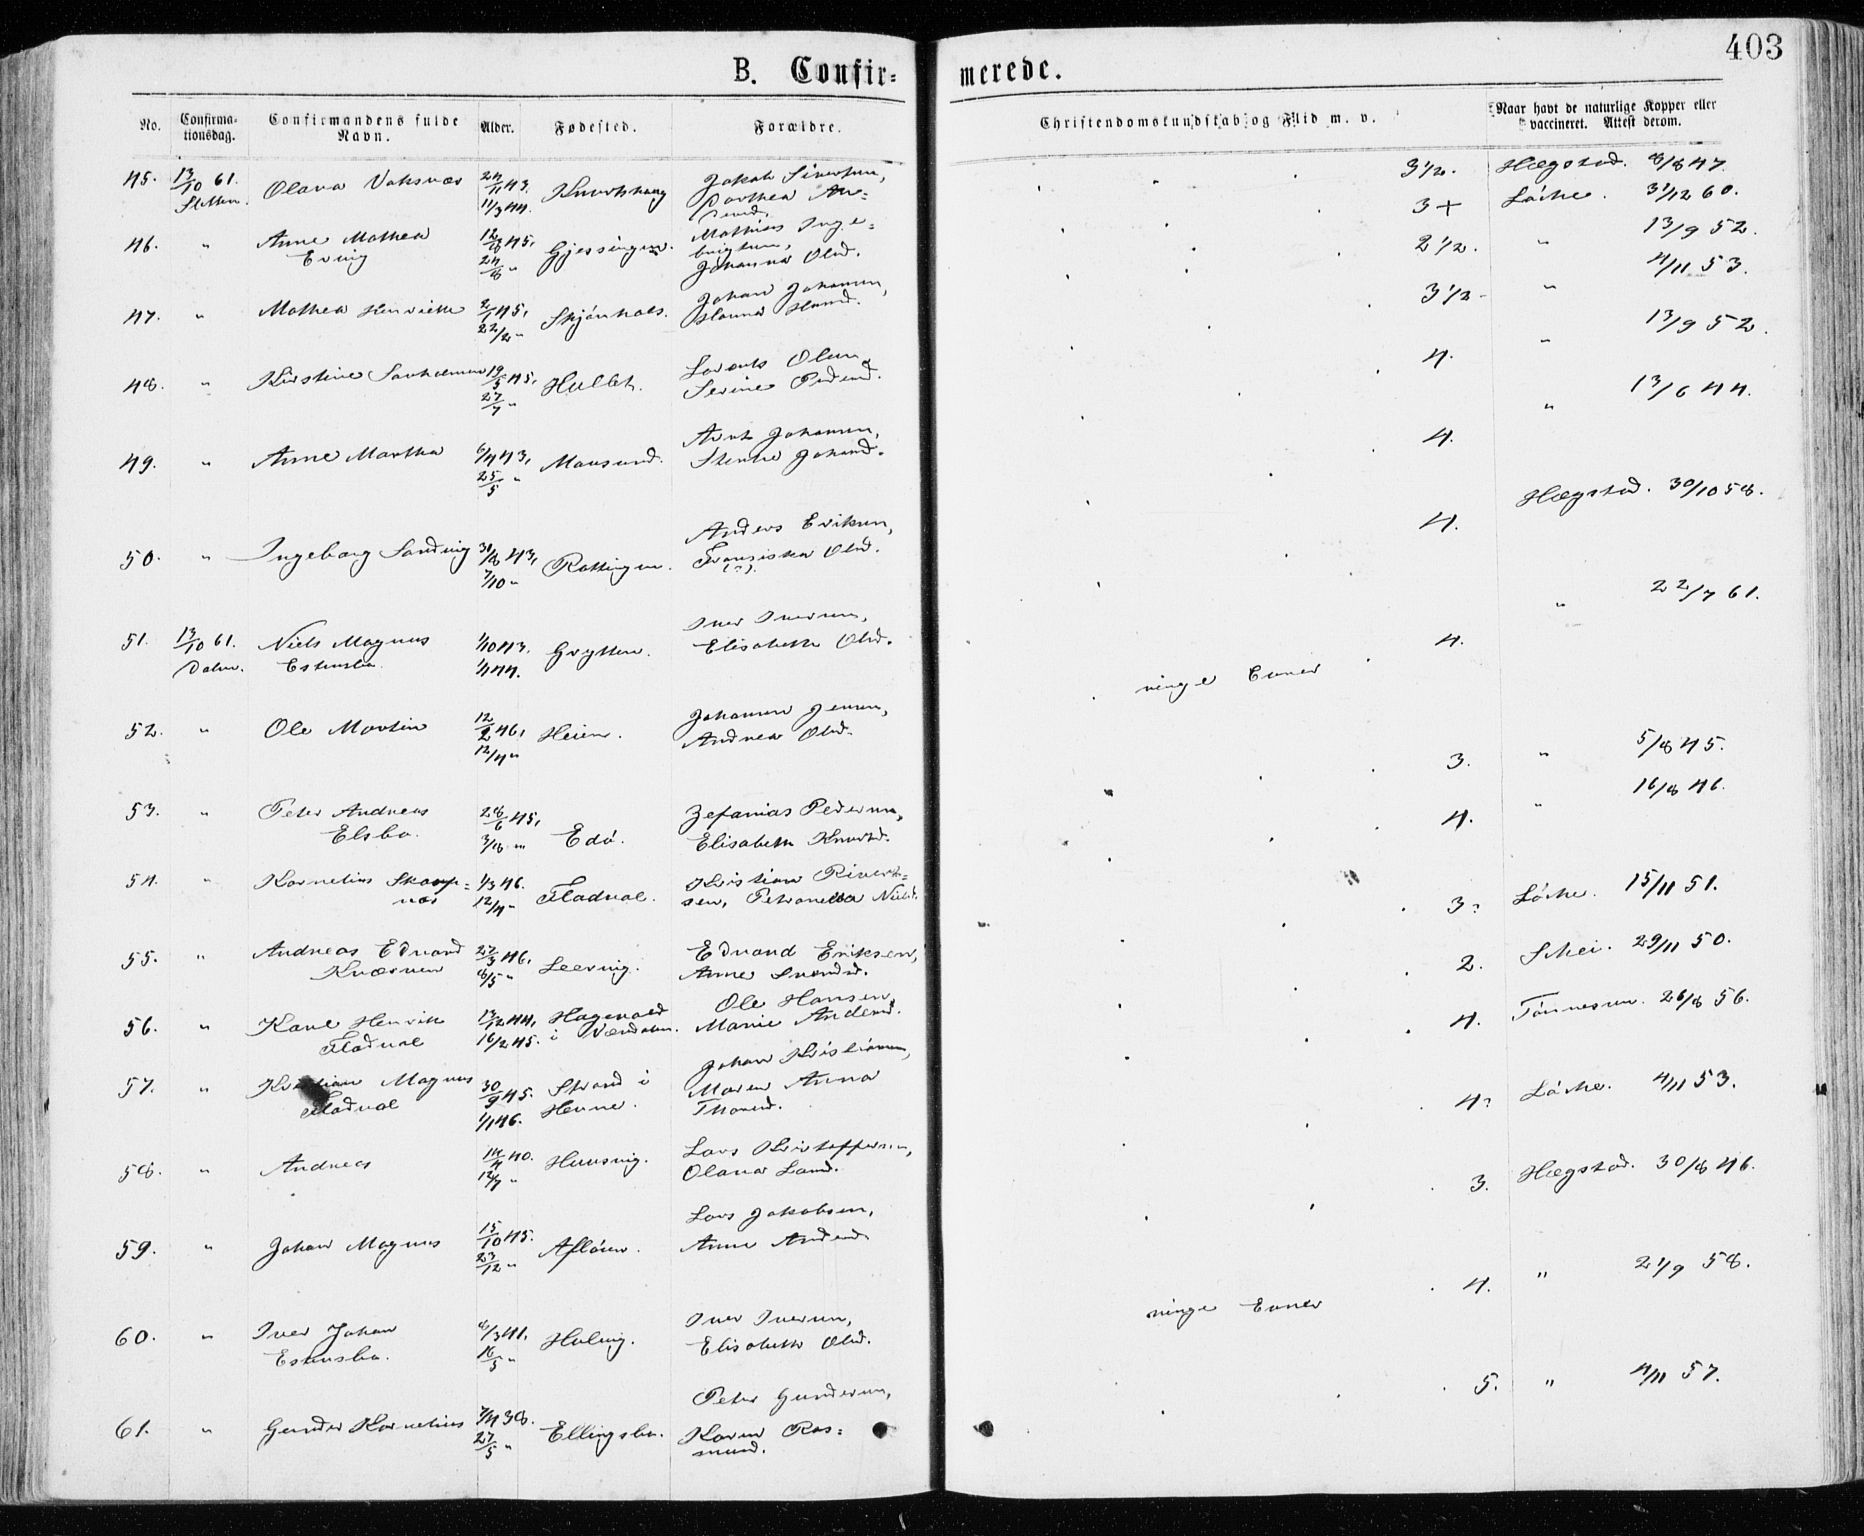 403
B. Confir=
merede.
No. Confirma-tionsdag. Confirmandens fulde Navn. Alder. Fødested. Forældre. Christendomskundskab og Flid m. v. Naar havt de naturlige Kopper eller vaccineret. Attest derom.
45. 13/10 61. Olava Vaksvær 24/11 43. Jakob Sivertsen, 3 1/2. Hægstad. 8/8 47.
Sletten 11/3 44. Dorthea An=
dersd. 3 + Løche. 31/12 60.
46. " Anne Mathea 12/6 45, Gjessingen. Mathias Inge=
Eving 24/8 " brigtsen, 2 1/2. " 13/9 52.
Johanna Olsd.
47. " Mathea Henriette 2/1 45, Skjønhals. Johan Johansen, 3 1/2 " 4/11 53.
22/2 " Hanna Hansd.
48. " Kirstine 19/5 45, Hullet. Lorents Olsen 4. " 13/9 52.
27/7 " Serine Pedersd.
49. " Anne Martha 6/4 43, Mausund. Arnt Johansen, 4. " 13/6 44.
25/5 " Johansd.
50. " Ingeborg Sandvig 31/8 43, Rottingen. Anders Eriksen, 4. Hægstad. 30/10 58.
7/10 " Fransiska Olsd.
(?).
51. 13/10 61. Niels Magnus 1/10 43. Grytten. Iver Iversen, 4. " 22/7 61.
Dolm. Estensbo. 1/1 44. Elisabeth Olsd.
ringe Evner
52. " Ole Martin 12/2 46, Heien. Johannes Jensen, 3. " 5/8 45.
12/4 " Andrea Olsd.
53. " Peter Andreas 28/6 45, Edø. Zefanias Pedersen, 4. " 16/8 46.
Elsbo. 3/8 " Elisabeth Knutsd.
54. " Kornelius Skarp= 1/3 46. Fladval. Kristian Riverts= 3? Løche. 15/11 51.
nes 12/4 " sen, Petronella Nielsd.
55. " Andreas Edvard 27/3 46, Leervig. Edvard Eriksen, 2. Schei. 29/11 50.
Knærnen 8/5 " Anne Svendsd.
56. " Karl Henrik 13/12 44, Hagevold Ole Hansen, 4. Tønnesen. 26/8 56.
Fladval 16/2 45. i Værdalen. Marie Andersd.
57. " Kristian Magnus 30/9 45. Strand i Johan Kristiansen, 4? Løche. 4/11 53.
Fladval 1/1 46. Hevne. Maren Anna
Thorsd.
58. " Andreas 14/4 40. Huusvig. Lars Kristoffersen, 3. Hægstad. 30/8 46.
12/7 " Olava Larsd.
59. " Johan Magnus 15/10 45. Afløsen. Lars Jakobsen, 4. " 21/9 58.
23/12 " Anne Andersd.
ringe Evner
60. " Iver Johan 8/3 41, Holvig. Iver Iversen, 5. " 4/11 57.
Estensbo. 16/5 " Elisabeth Olsd.
61. " Gunder Kornelius 7/4 38. Ellingsbo. Peter Gundersen,
27/5 " Karen Ras=
musd.